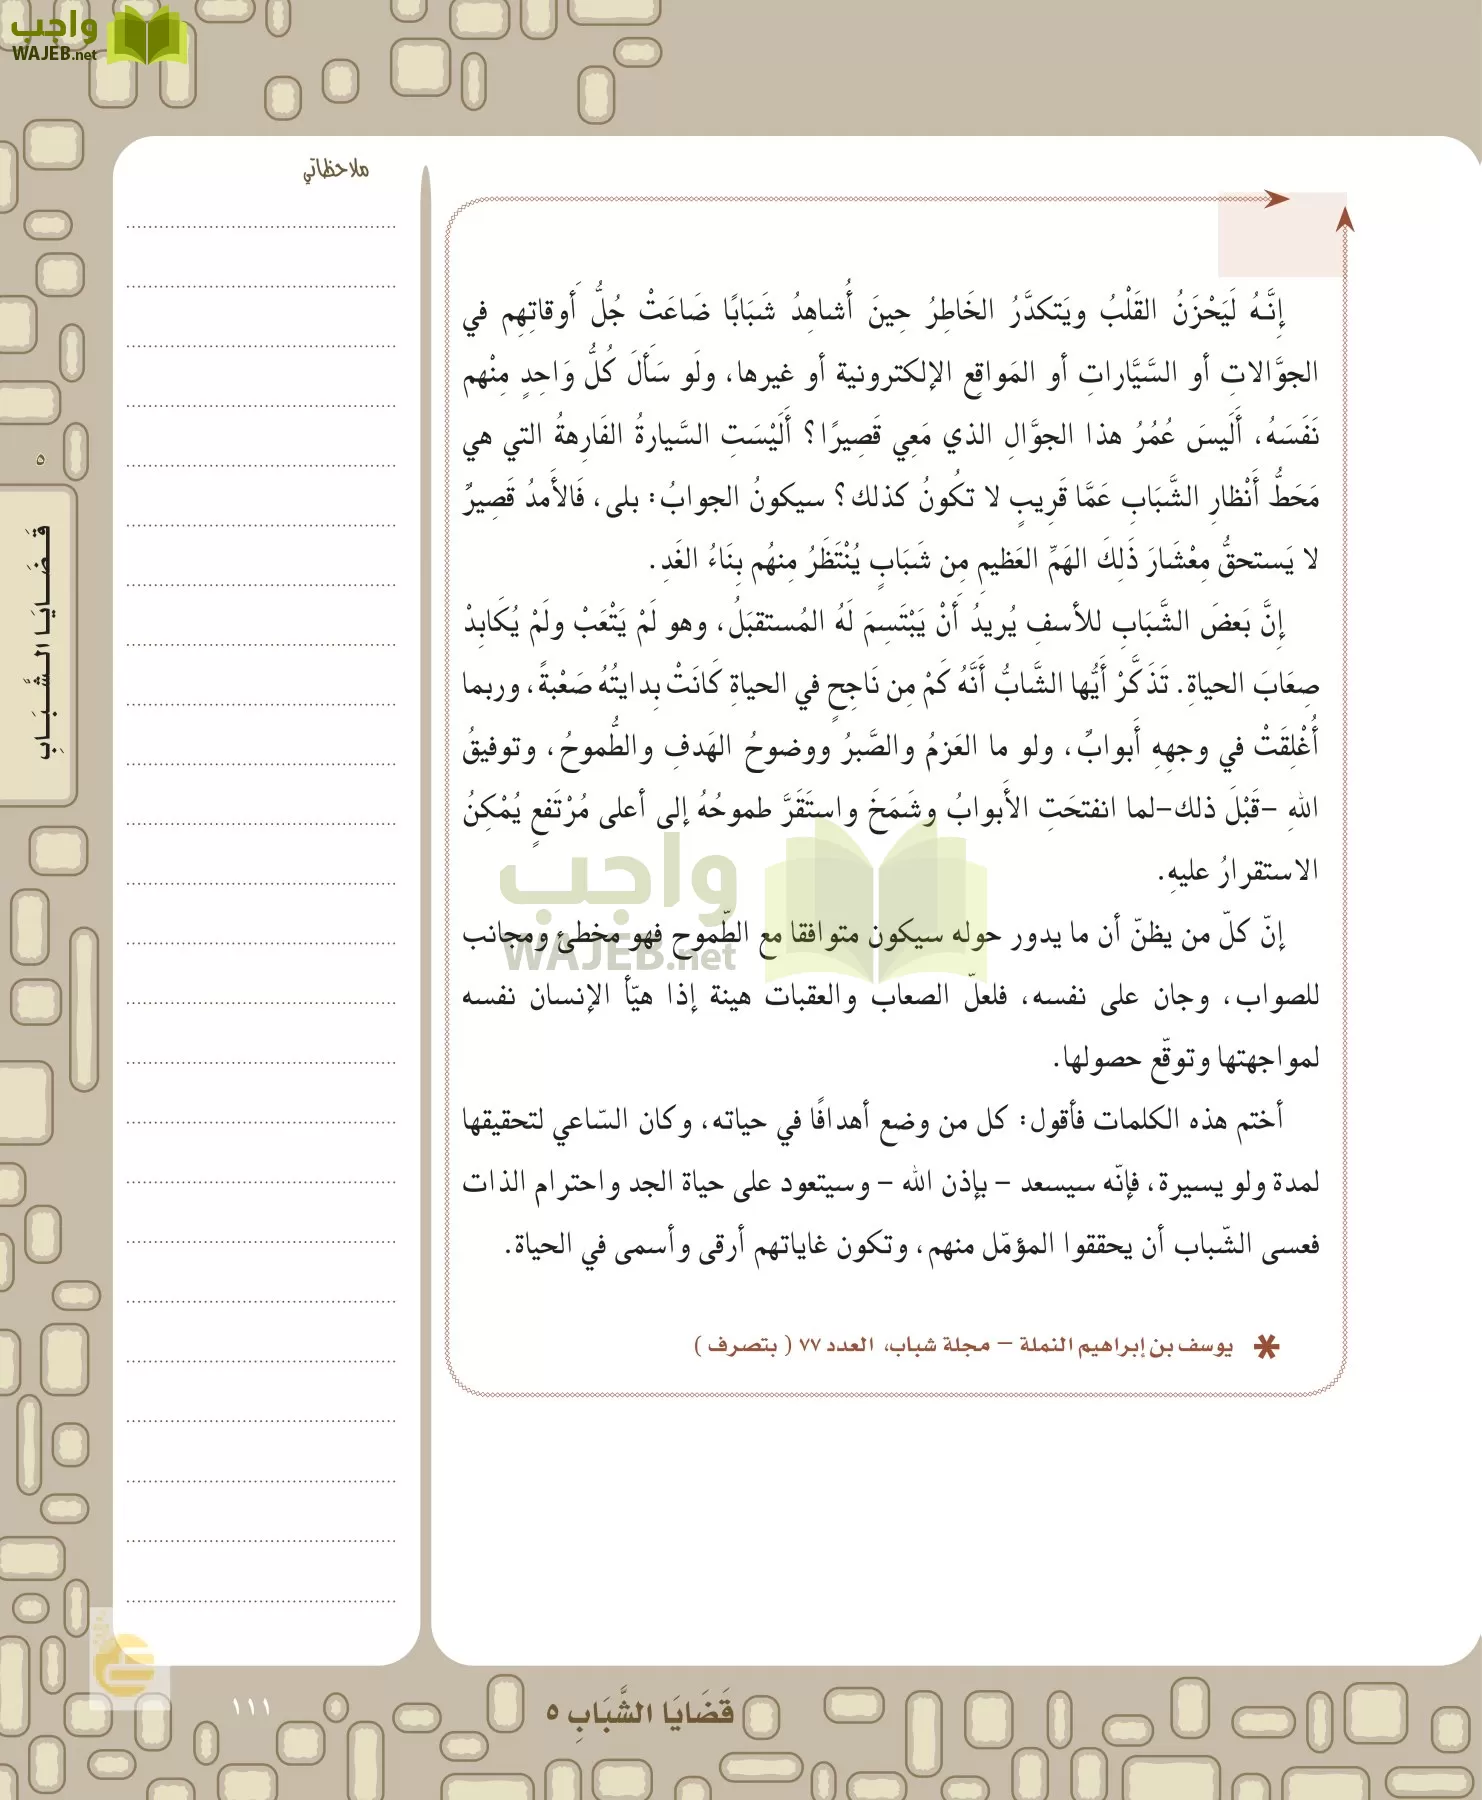 واجب
WAJEB.net
ملاحظاتي
إِنَّـهُ لَيَحْزَنُ القَلْبُ ويَتكدَّرُ الخَاطِرُ حِينَ أُشاهِدُ شَبَابًا ضَاعَتْ جُلُّ أَوقاتِهِم في
الجوَّالاتِ أو السَّيَّاراتِ أو المَواقعِ الإلكترونية أو غيرها، ولَو سَأَلَ كُلُّ وَاحِدٍ مِنْهم
نَفَسَهُ، أَلَيسَ عُمُرُ هذا الجوَّالِ الذي مَعِي قَصِيرًا؟ أَلَيْسَتِ السَّيارةُ الفَارِهةُ التي هي
مَحَطُّ أَنْظارِ الشَّبَابِ عَمَّا قَرِيبٍ لا تكُونُ كذلك؟ سيكونُ الجوابُ: بلى، فَالأَمدُ قَصِيرٌ
لا يَستحقُّ مِعْشَارَ ذَلِكَ الهَمِّ العَظيمِ مِن شَبَابٍ يُنْتَظَرُ مِنهُم بِنَاءُ الغَدِ.
إِنَّ بَعضَ الشَّبَابِ للأسفِ يُريدُ أَنْ يَبْتَسِمَ لَهُ المُستقبَلُ، وهو لَمْ يَتْعَبْ ولَمْ يُكَابِدْ
صِعَابَ الحياةِ. تَذَكَّرْ أَيُّها الشَّابُّ أَنَّهُ كَمْ مِن نَاجِحٍ في الحياةِ كَانَتْ بِدايتُهُ صَعْبةً، وربما
أُغْلِقَتْ في وجهِهِ أَبوابٌ، ولو ما العَزمُ والصَّبرُ ووضوحُ الهَدفِ والطُّموحُ، وتوفيقُ
اللهِ -قَبْلَ ذلك-لما انفتحَتِ الأَبوابُ وشَمَخَ واستَقَرَّ طموحُهُ إلى أعلى مُرْتَفعٍ يُمْكِنُ
الاستقرارُ عليهِ.
واجب
WAJEB.net
إنّ كلّ من يظنّ أن ما يدور حوله سيكون متوافقا مع الطّموح فهو مخطئ ومجانب
للصواب، وجان على نفسه، فلعلّ الصعاب والعقبات هينة إذا هيّأ الإنسان نفسه
لمواجهتها وتوقّع حصولها.
أختم هذه الكلمات فأقول: كل من وضع أهدافًا في حياته، وكان السّاعي لتحقيقها
لمدة ولو يسيرة، فإنّه سيسعد - بإذن الله - وسيتعود على حياة الجد واحترام الذات
فعسى الشّباب أن يحققوا المؤمّل منهم، وتكون غاياتهم أرقى وأسمى في الحياة.
* يوسف بن إبراهيم النملة - مجلة شباب، العدد ٧٧ ( بتصرف )
٥
قَـضَـايَـا الـشَّـبَـابِ
قَضَايَا الشَّبَابِ ٥
١١١